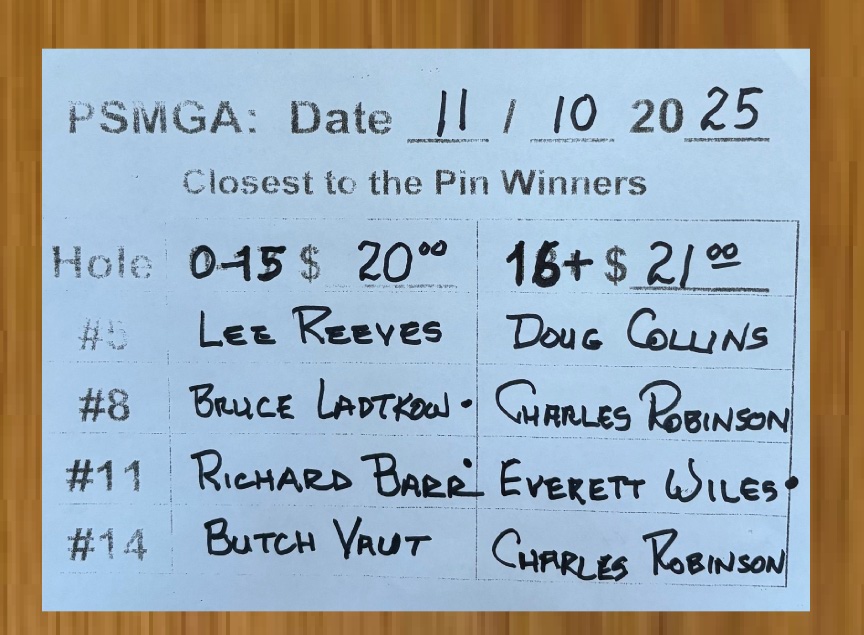 PSMGA: Date 11 / 10 20 25
Closest to the Pin Winners
Hole 0-15 $ 20⁰⁰ 16+ $ 21⁰⁰
#5 LEE REEVES DOUG COLLINS
#8 BRUCE LADTKOW • CHARLES ROBINSON
#11 RICHARD BARR • EVERETT WILES •
#14 BUTCH VAUT CHARLES ROBINSON